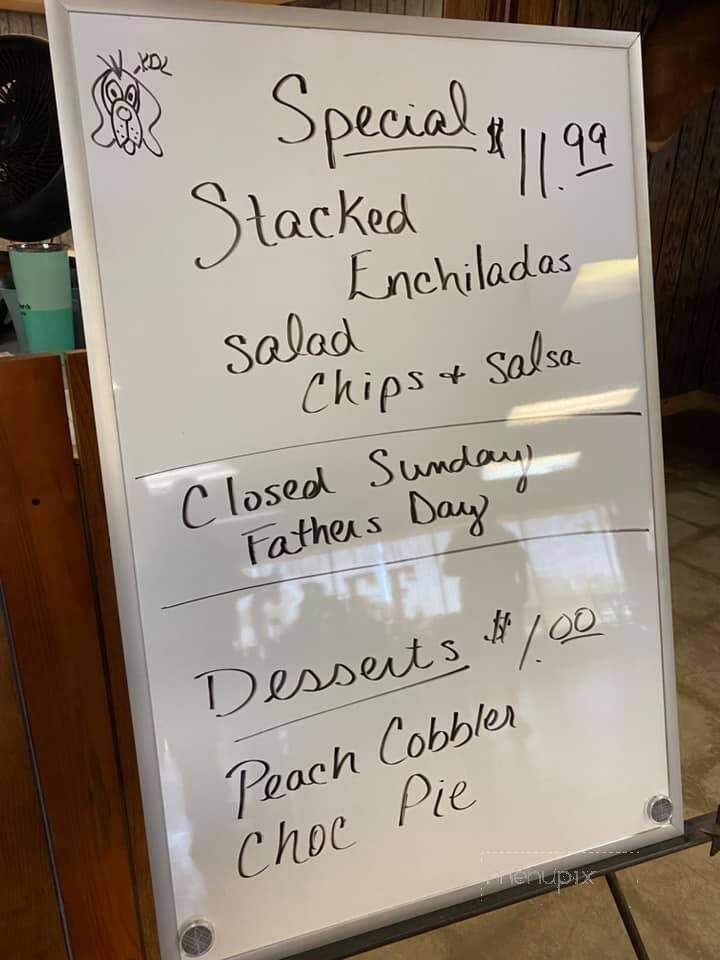 Special $11.99
Stacked
Enchiladas
Salad
Chips + Salsa
Closed Sunday
Fathers Day
Desserts $1.00
Peach Cobbler
Choc Pie
menupix